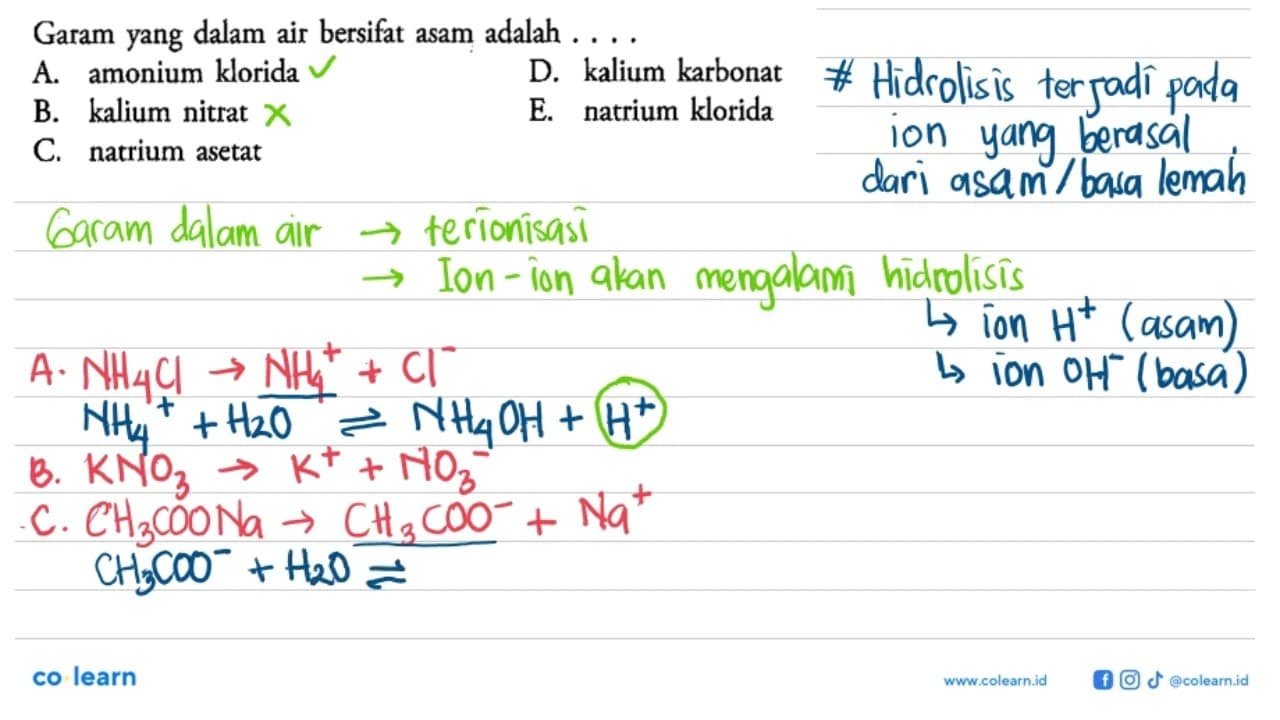 Garam yang dalam air bersifat asam adalah . . . .
A. amonium klorida ✓
B. kalium nitrat ✗
C. natrium asetat
D. kalium karbonat
E. natrium klorida
# Hidrolisis terjadi pada
ion yang berasal
dari asam/basa lemah
Garam dalam air → terionisasi
→ Ion-ion akan mengalami hidrolisis
↳ ion H⁺ (asam)
↳ ion OH⁻ (basa)
A. NH₄Cl → NH₄⁺ + Cl⁻
NH₄⁺ + H₂O ⇌ NH₄OH + H⁺
B. KNO₃ → K⁺ + NO₃⁻
C. CH₃COONa → CH₃COO⁻ + Na⁺
CH₃COO⁻ + H₂O ⇌
co learn
www.colearn.id
@colearn.id